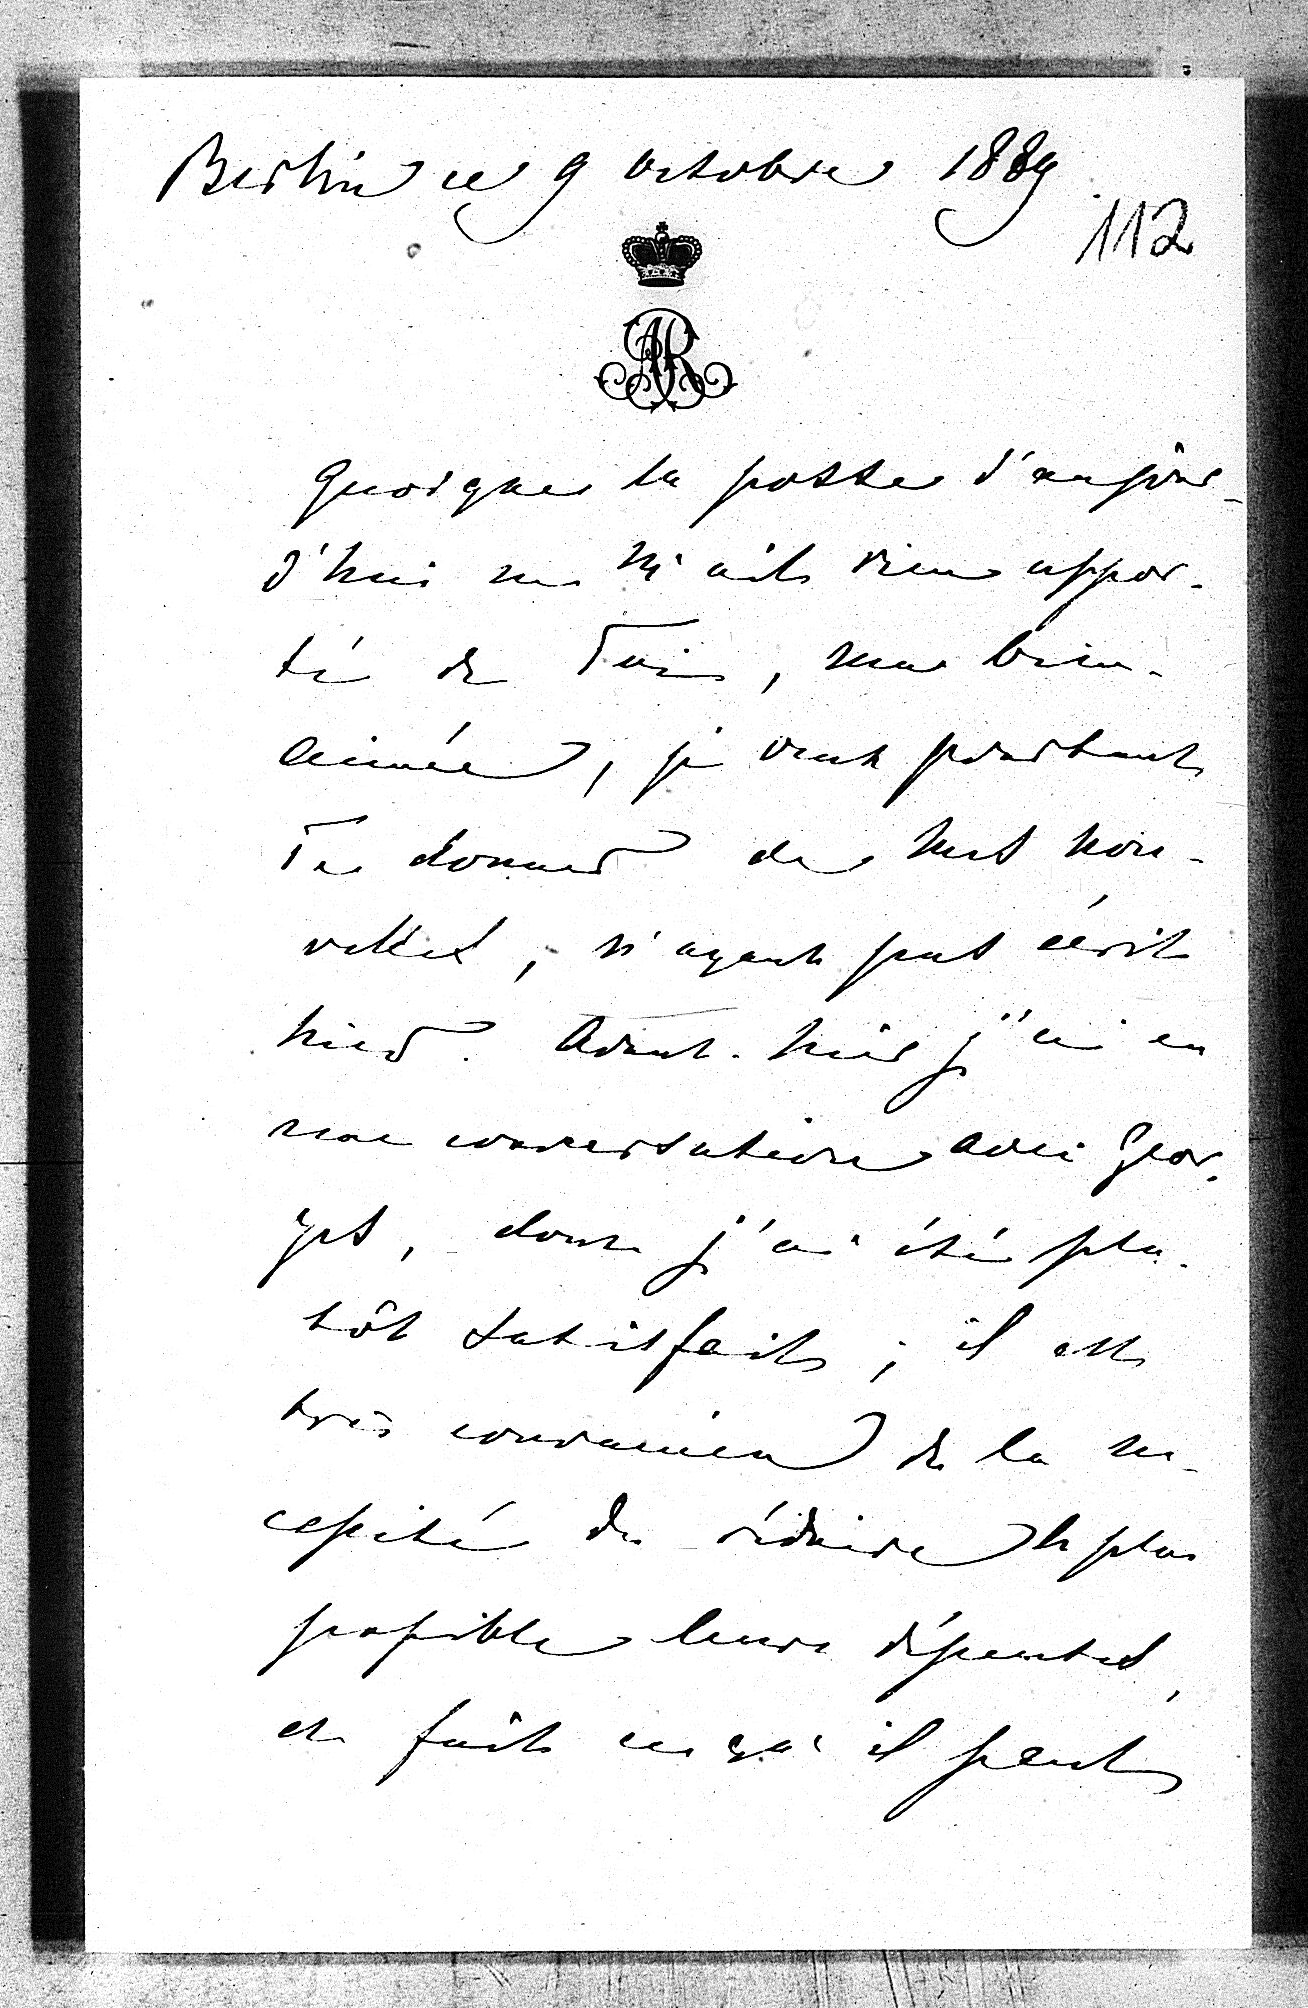 Berlin ce 9 octobre 1889
112
AR
Quoique la poste d'aujour-
d'hui ne m'ait rien appor-
té de Toi, ma bien-
aimée, je veux pourtant
Te donner de mes nou-
velles, n'ayant pas écrit
hier. Avant-hier j'ai eu
une conversation avec Geor-
ges, dont j'ai été plu-
tôt satisfait; il est
très convaincu de la né-
cessité de réduire le plus
possible leurs dépenses,
et fait ce qu'il peut